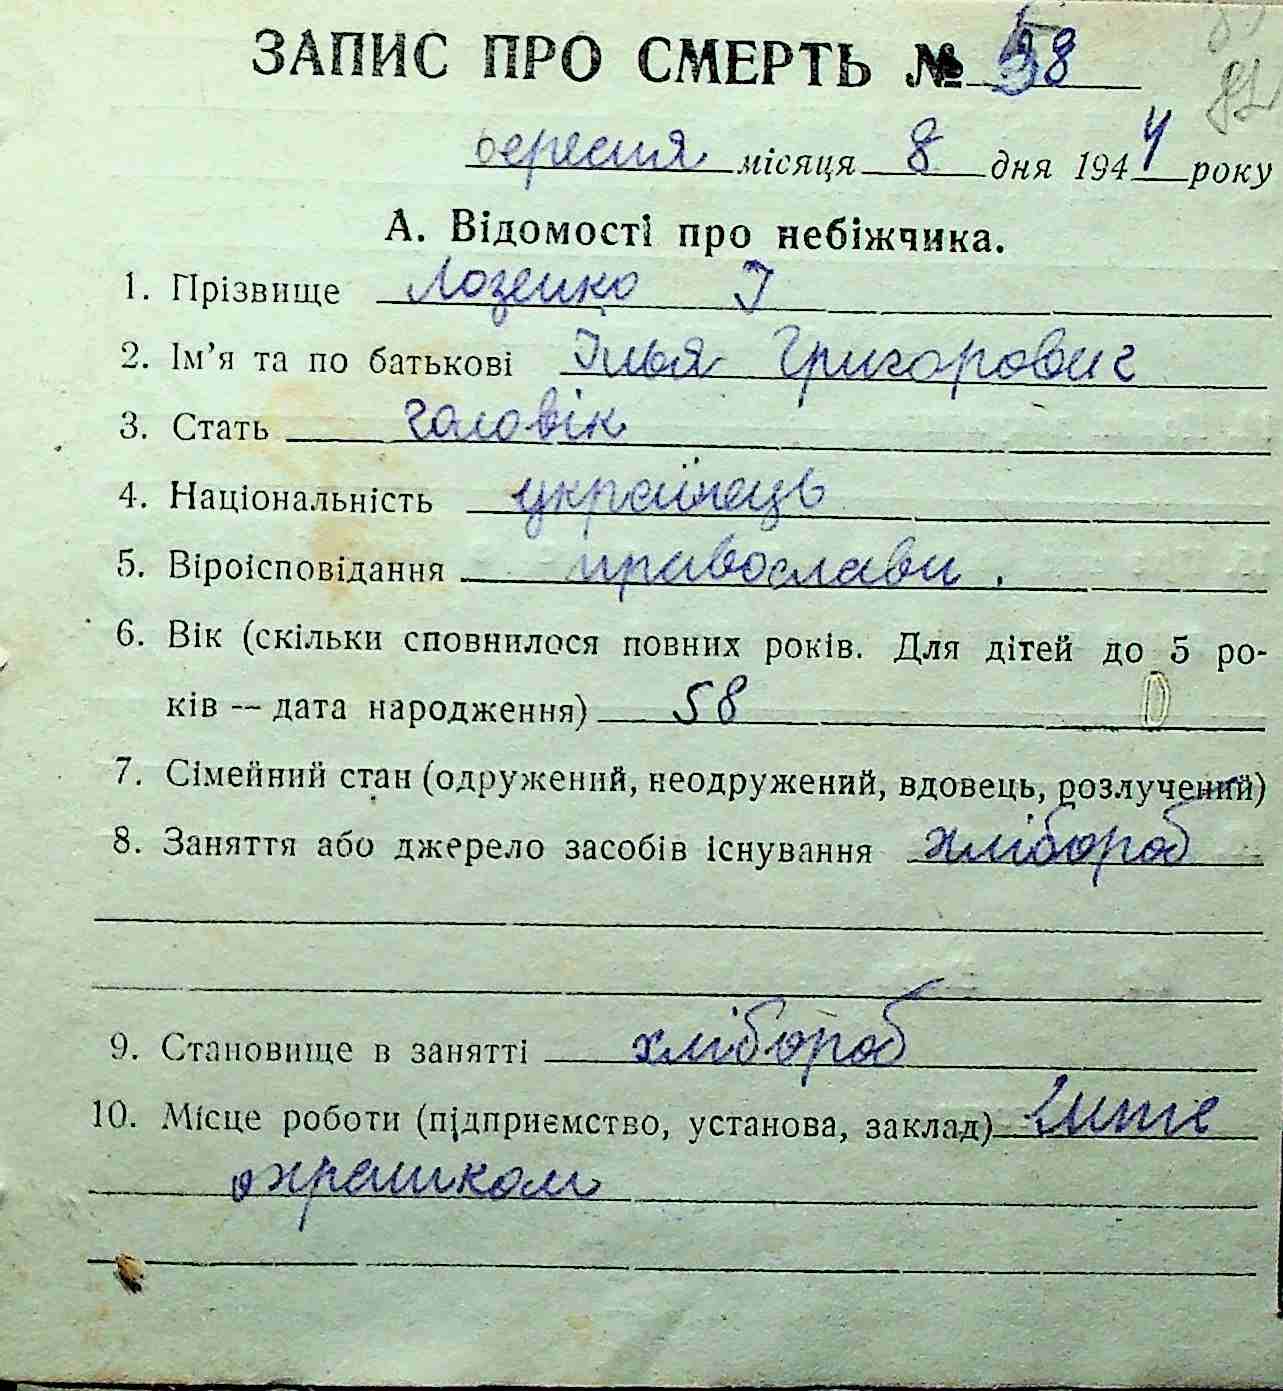 ЗАПИС ПРО СМЕРТЬ № 58
82
вересня місяця 8 дня 1944 року
А. Відомості про небіжчика.
1. Прізвище Лозенко І
2. Ім'я та по батькові Ілья Григорович
3. Стать чоловік
4. Національність українець
5. Віроісповідання православн.
6. Вік (скільки сповнилося повних років. Для дітей до 5 ро-
ків — дата народження) 58
7. Сімейний стан (одружений, неодружений, вдовець, розлучений)
8. Заняття або джерело засобів існування хлібороб
9. Становище в занятті хлібороб
10. Місце роботи (підприємство, установа, заклад)